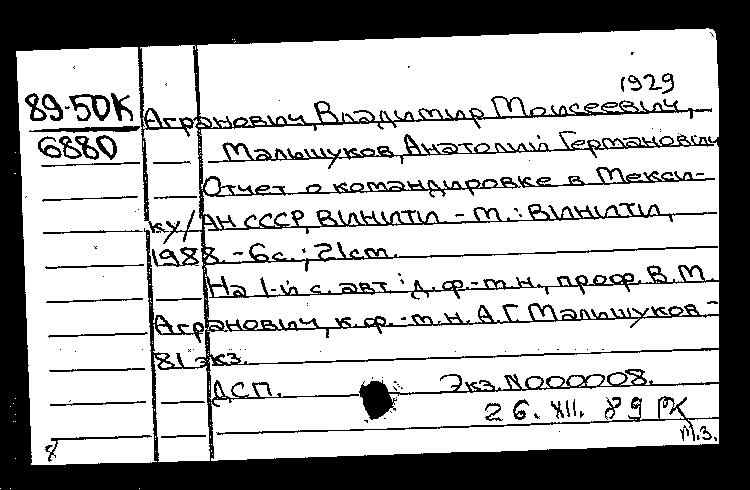 1929
89-50К Агранович, Владимир Моисеевич,
6880 Малышуков, Анатолий Германович
Отчет о командировке в Мекси-
ку/АН СССР, ВИНИТИ. - М.: ВИНИТИ,
1988. - 6 с.; 21 см.
На 1-й с. авт.: д.ф.-м.н., проф. В.М.
Агранович, к.ф.-м.н. А.Г. Малышуков. -
81 экз.
ДСП. Экз. N000008.
26. XII. 89 РК
м.з.
8